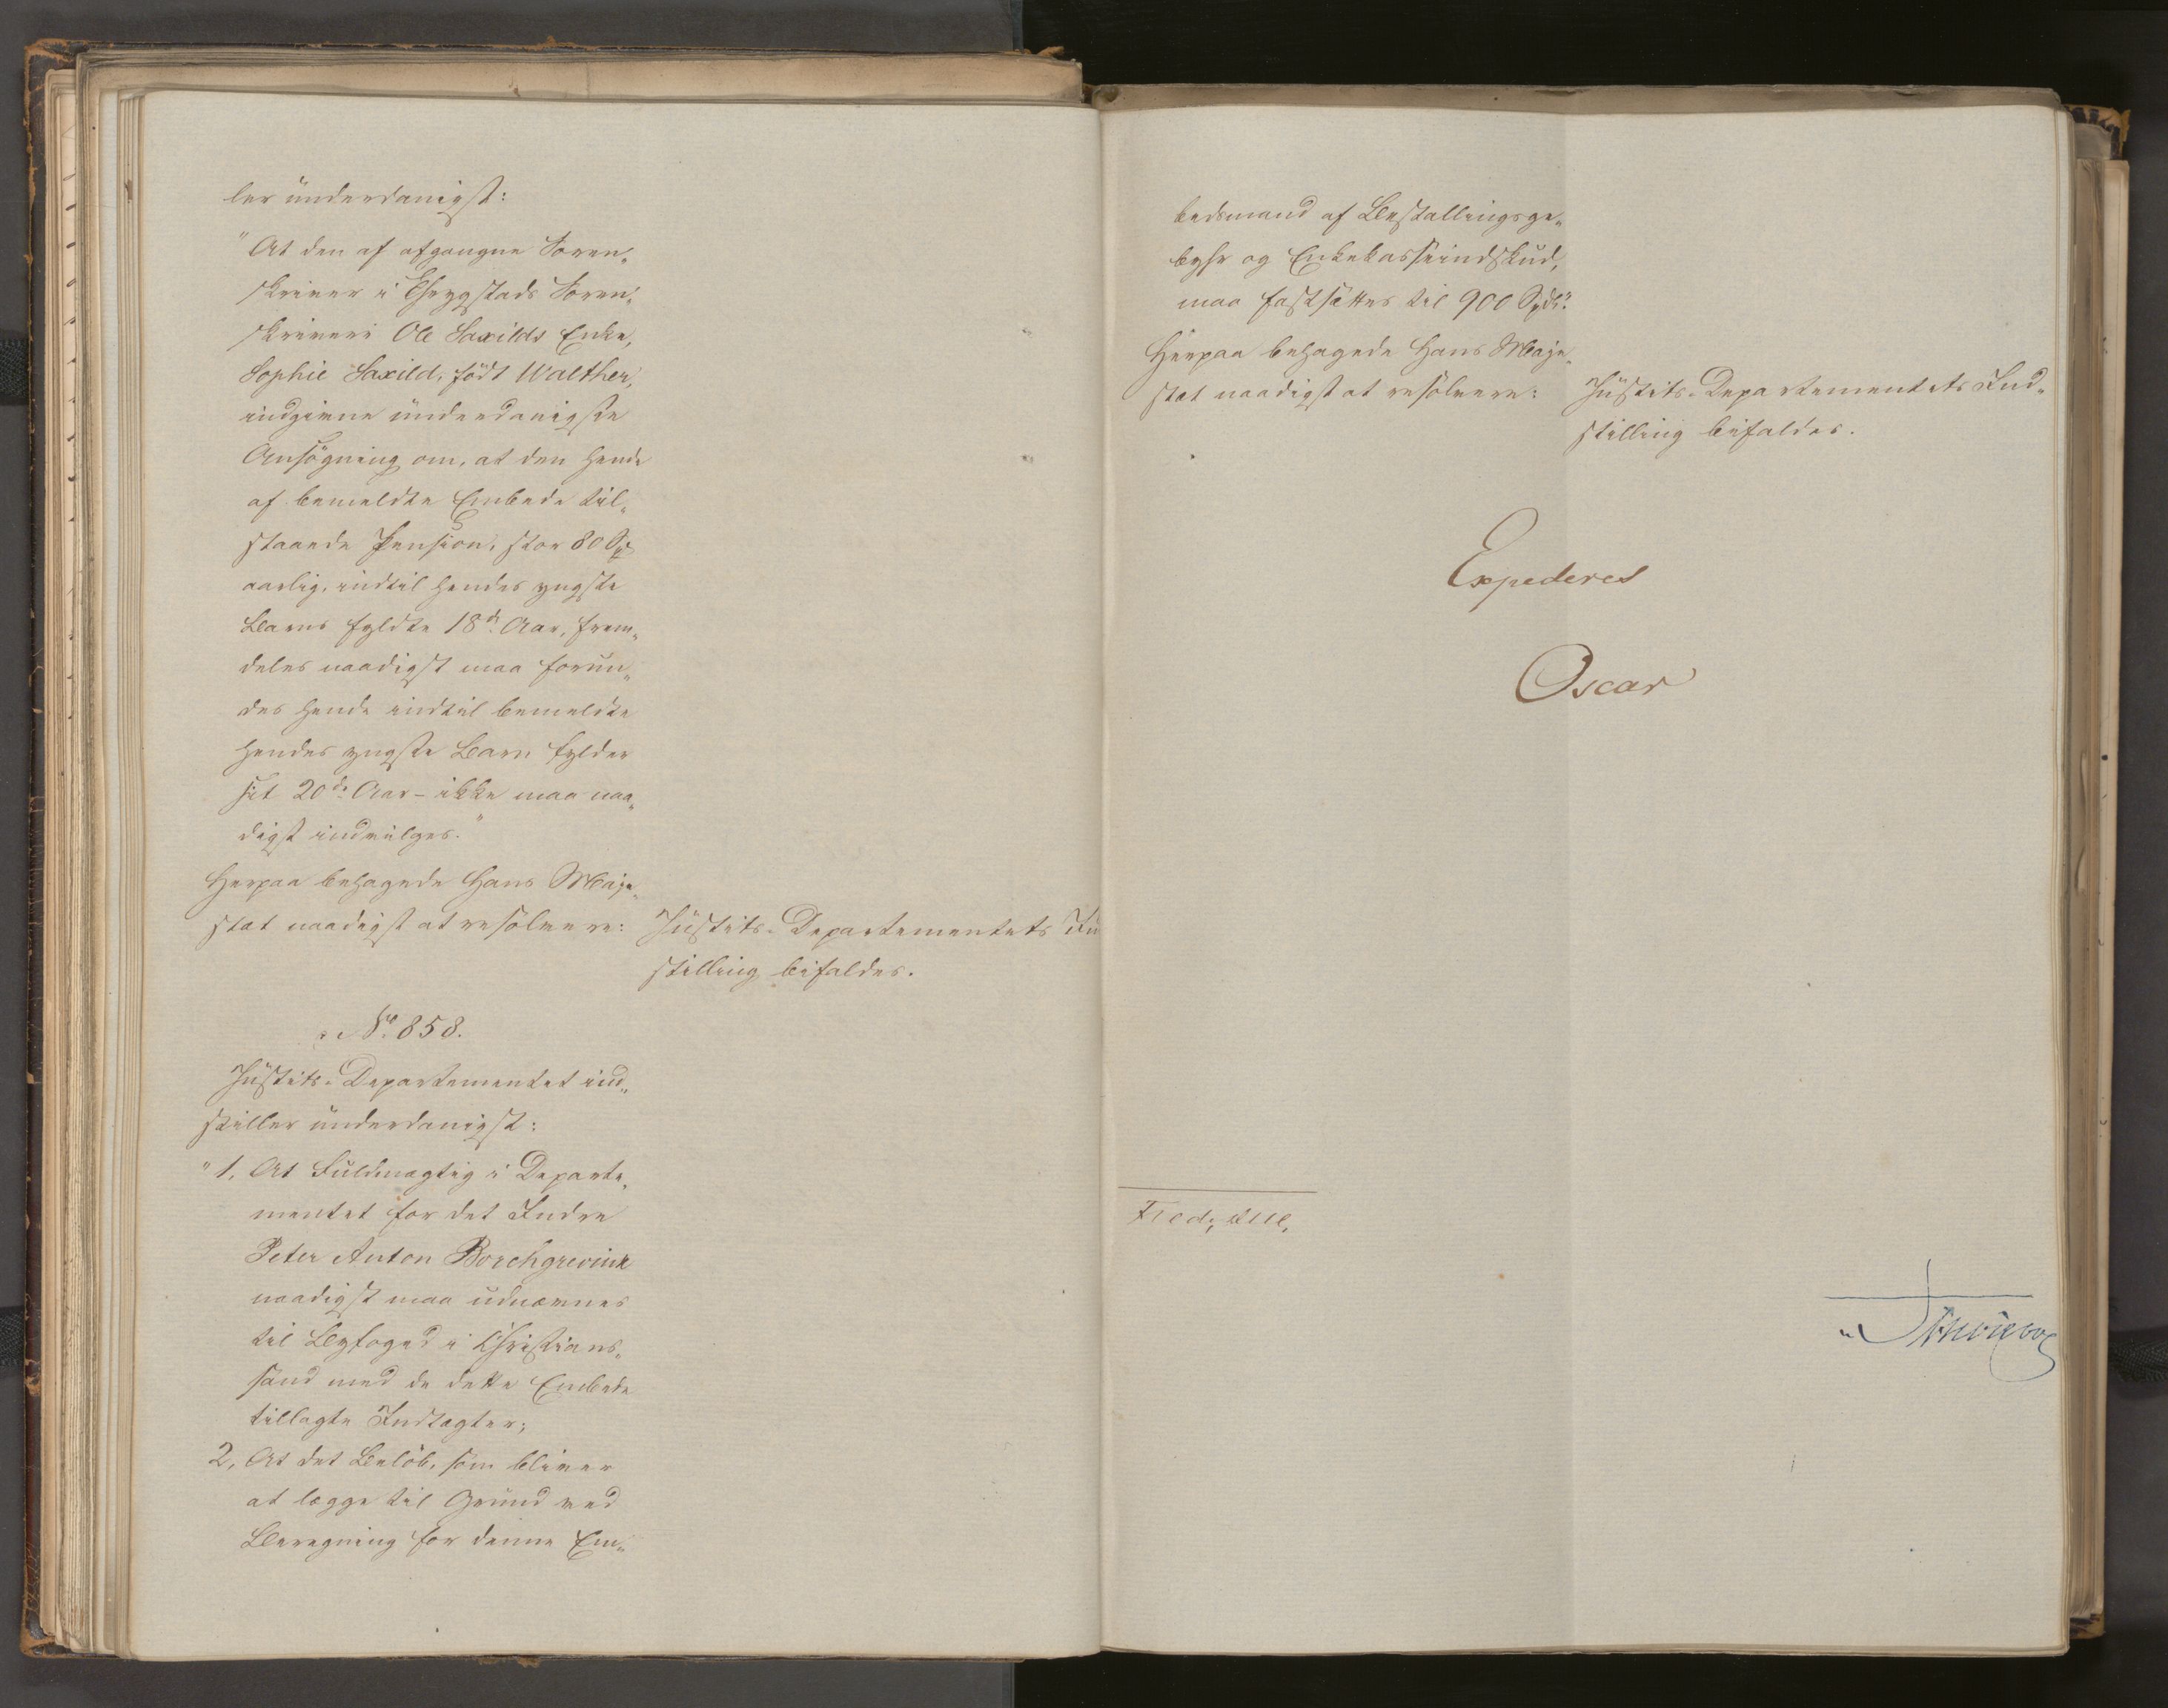 ler underdanigst:
"At den af afgangne Soren-
skriver i Heggstads Soren-
skriveri Ole Saxilds Enke,
Sophie Saxild, født Walther,
indgivne underdanigste
Ansøgning om, at den hende
af bemeldte Embede til-
staaede Pension, stor 80 Spd
aarlig, indtil hendes yngste
Barns fyldte 18de Aar, frem-
deles naadigst maa forun-
des hende indtil bemeldte
hendes yngste Barn fylder
sit 20de Aar - ikke maa naa-
digst indvilges."
Herpaa behagede Hans Maje-
stæt naadigst at resolvere:
Justits-Departementets In
stilling bifaldes.
No. 858.
Justits-Departementet ind-
stiller underdanigst:
"1, At Fuldmægtig i Departe-
mentet for det Indre
Peter Anton Borchgrevink
naadigst maa udnævnes
til Byfoged i Christians-
sand med de dette Embede
tillagte Indtægter;
2, At det Beløb, som bliver
at lægge til Grund ved
Beregning for denne Em-
bedsmand af Bestallingsge-
byhr og Enkekasseindskud,
maa fastsættes til 900 Spd."
Herpaa behagede Hans Maje-
stæt naadigst at resolvere:
Justits-Departementets Ind-
stilling bifaldes.
Expederes
Oscar